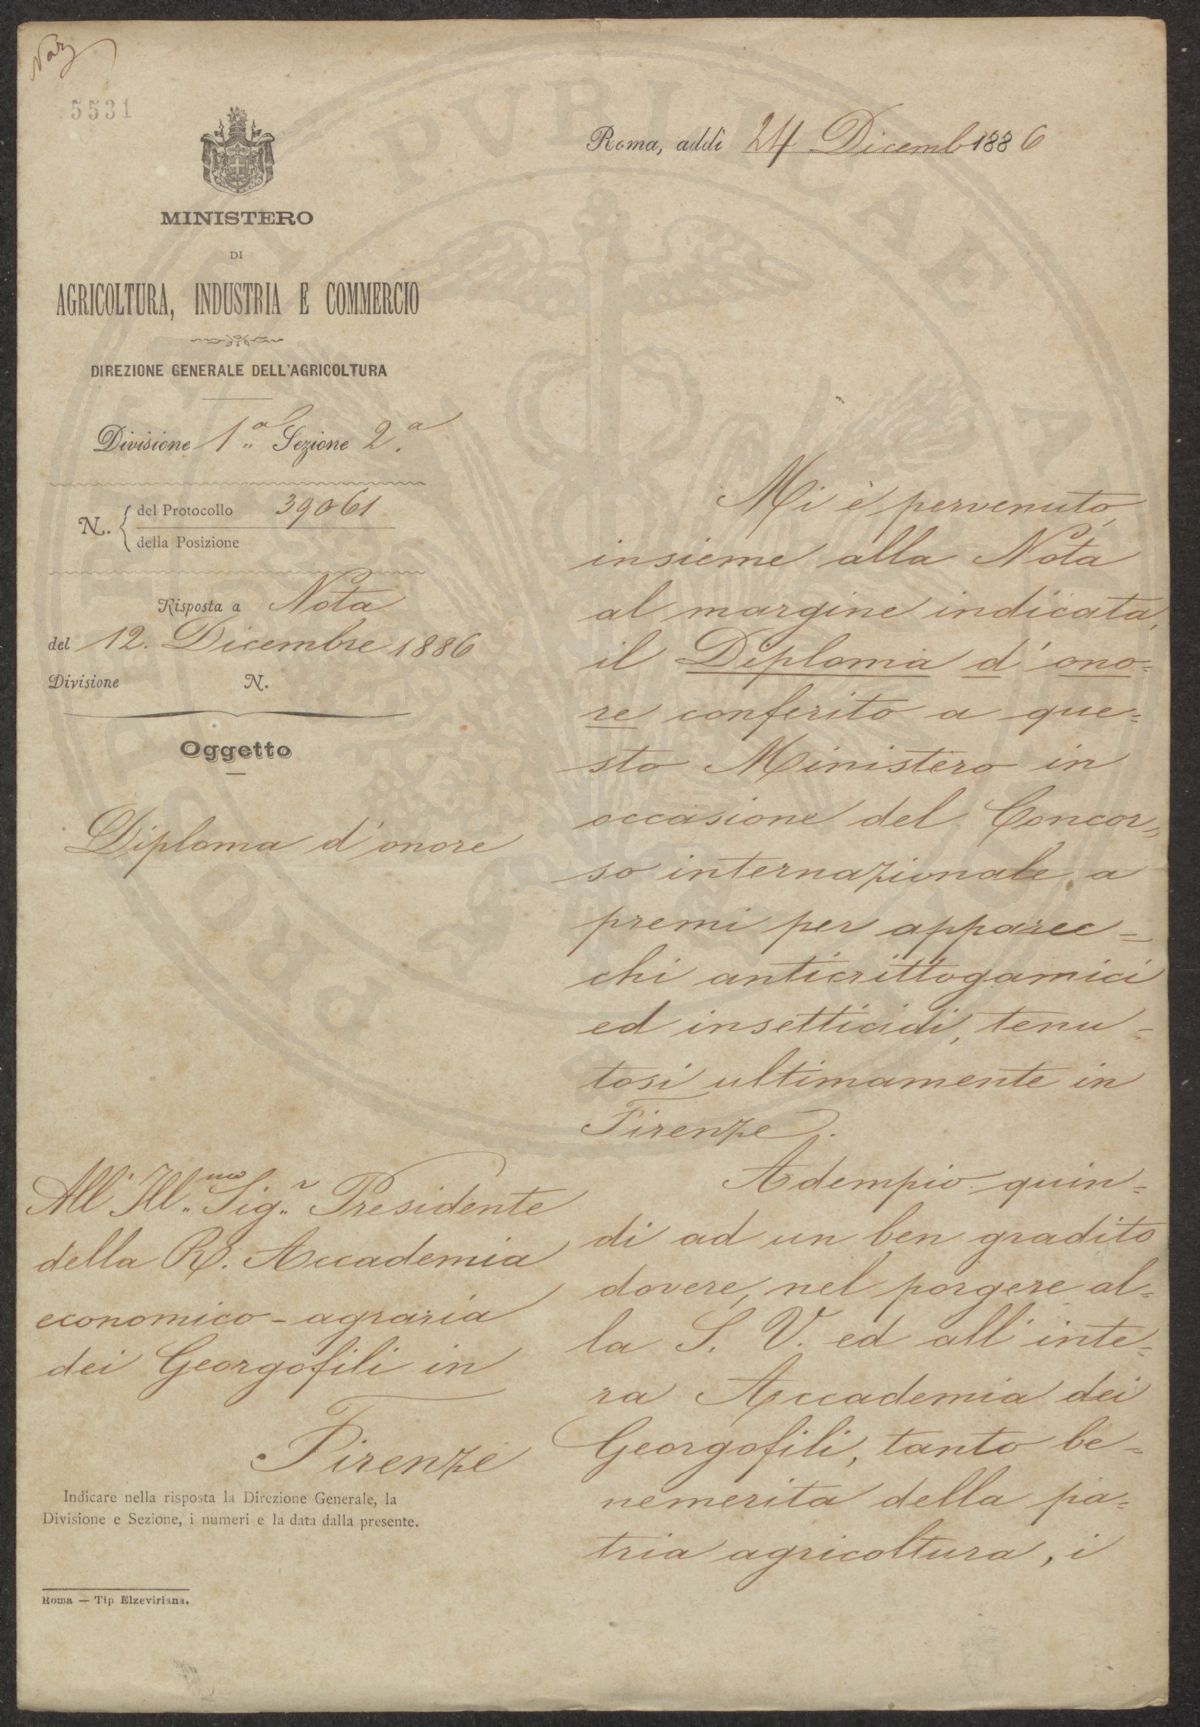 Naz
5531
MINISTERO
DI
AGRICOLTURA, INDUSTRIA E COMMERCIO
DIREZIONE GENERALE DELL'AGRICOLTURA
Divisione 1.a Sezione 2.a
N. { del Protocollo 39061
della Posizione
Risposta a Nota
del 12. Dicembre 1886
Divisione N.
Oggetto
Diploma d'onore
All'Ill.mo Sig.r Presidente
della R. Accademia
economico-agraria
dei Georgofili in
Firenze
Indicare nella risposta la Direzione Generale, la
Divisione e Sezione, i numeri e la data dalla presente.
Roma — Tip Elzeviriana.
Roma, addì 24 Dicemb 1886
Mi è pervenuto,
insieme alla Nota
al margine indicata,
il Diploma d'ono=
re conferito a que=
sto Ministero in
occasione del Concor=
so internazionale a
premi per apparec=
chi anticrittogamici
ed insetticidi, tenu=
tosi ultimamente in
Firenze.
Adempio quin=
di ad un ben gradito
dovere, nel porgere al=
la S. V. ed all'inte=
ra Accademia dei
Georgofili, tanto be=
nemerita della pa=
tria agricoltura, i